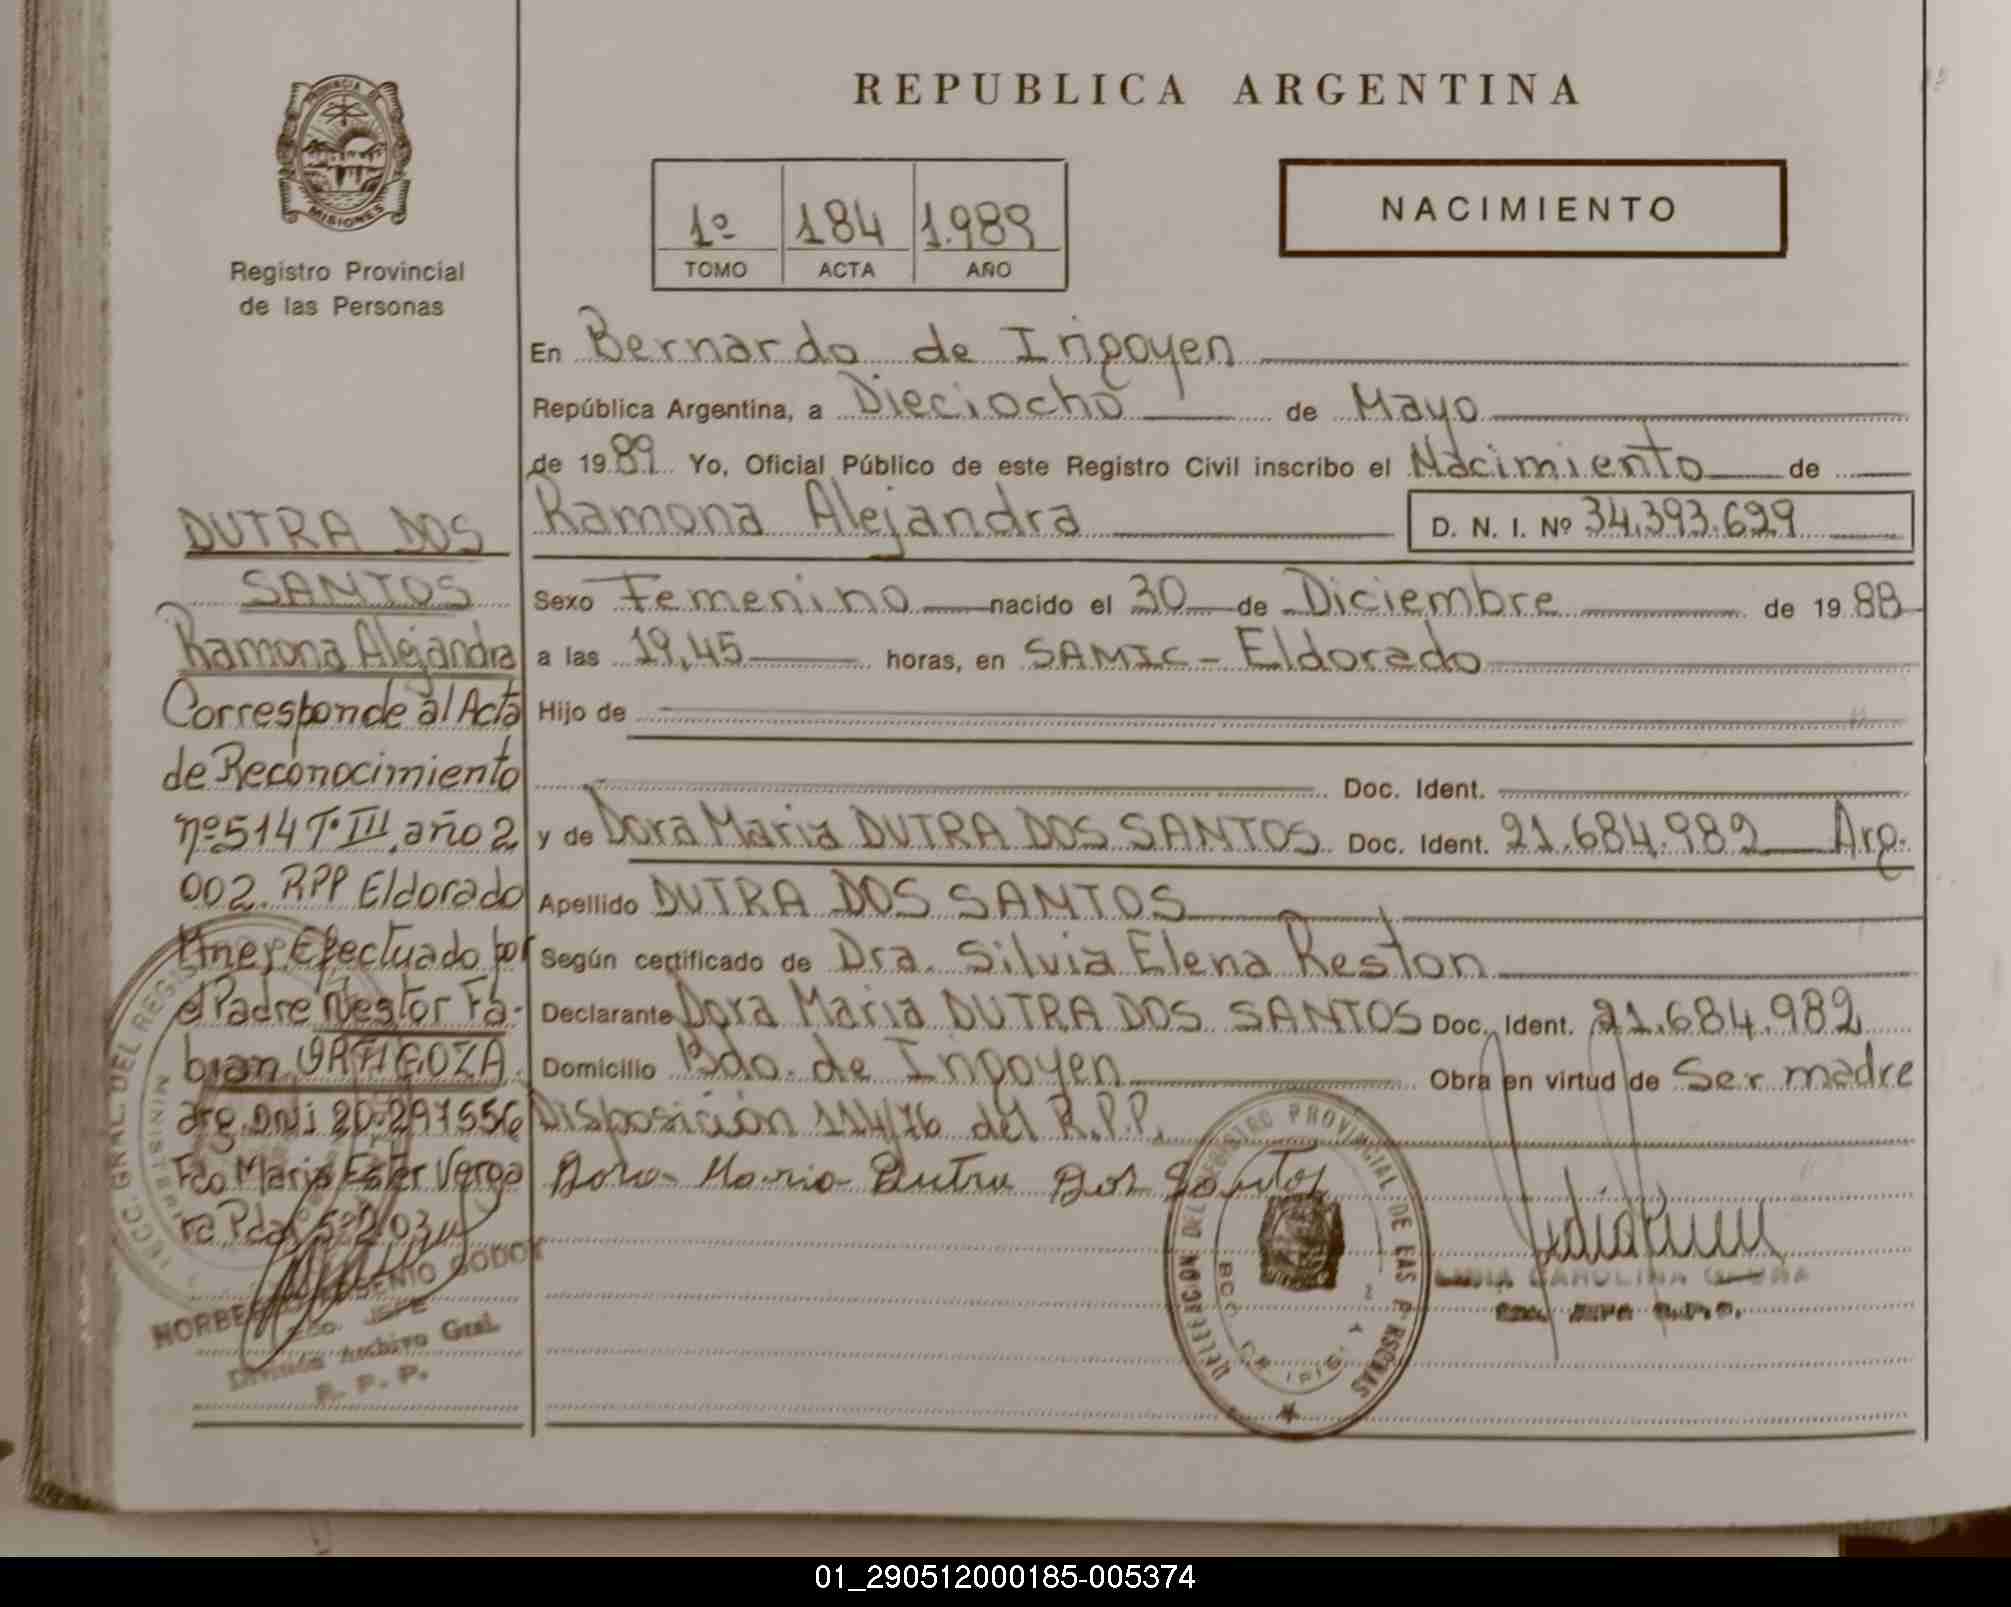 REPUBLICA ARGENTINA
PROVINCIA DE
MISIONES
Registro Provincial
de las Personas
1º 184 1.989
TOMO ACTA AÑO
NACIMIENTO
En Bernardo de Irigoyen
República Argentina, a Dieciocho de Mayo
de 1989 Yo, Oficial Público de este Registro Civil inscribo el Nacimiento de
Ramona Alejandra D. N. I. Nº 34.393.629
Sexo Femenino nacido el 30 de Diciembre de 1988
a las 19,45 horas, en SAMIC - Eldorado
Hijo de
Doc. Ident.
y de Dora Maria DUTRA DOS SANTOS Doc. Ident. 21.684.982 Arg.
Apellido DUTRA DOS SANTOS
Según certificado de Dra. Silvia Elena Reston
Declarante Dora Maria DUTRA DOS SANTOS Doc. Ident. 21.684.982
Domicilio Bdo. de Irigoyen Obra en virtud de Ser madre
Disposición 114/76 del R.P.P.
Dora Maria Dutra Dos Santos
DELEGACION DEL REGISTRO PROVINCIAL DE LAS PERSONAS
LIDIA CAROLINA
DUTRA DOS
SANTOS
Ramona Alejandra
Corresponde al Acta
de Reconocimiento
nº 514 Tº III año 2
002. RPP Eldorado
Mnes. Efectuado por
el Padre Nestor Fa-
bian
arg. DNI 20.297556
Fdo Maria Ester Verga
ra Pdas 5-2-03
DIRECC. GRAL. DEL REGIS
MINIST
NORBERTO EUGENIO GODOY
JEFE
División Archivo Gral.
R. P. P.
01_290512000185-005374